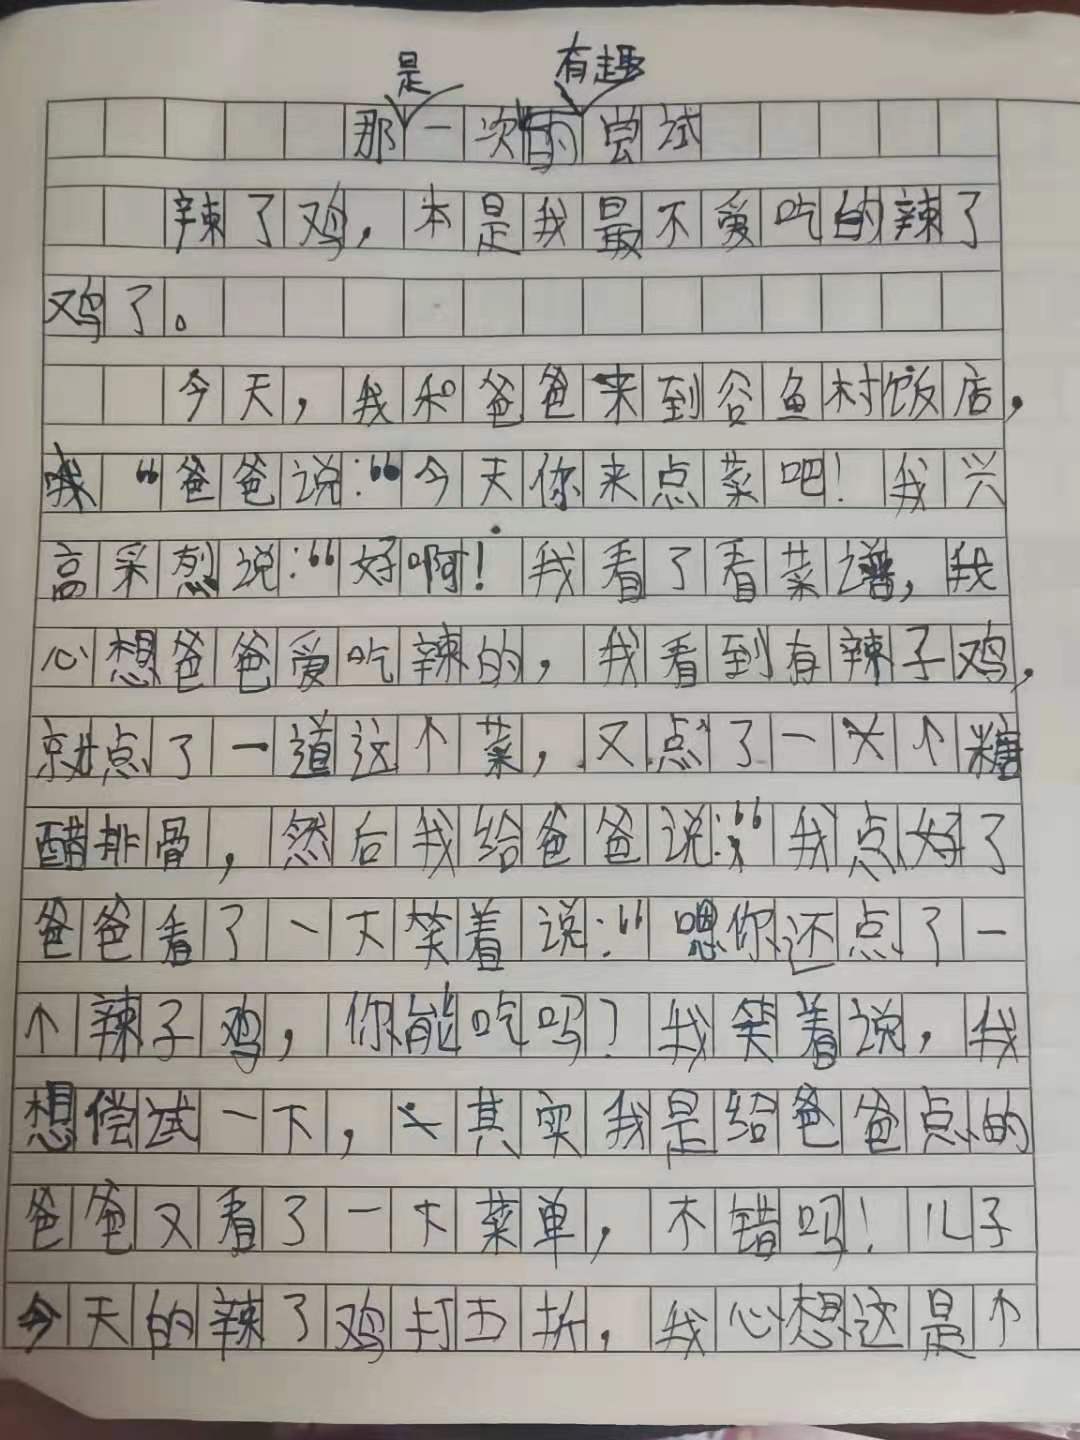 是 有趣
那一次的尝试
辣了鸡，本是我最不爱吃的辣了
鸡了。
今天，我和爸爸来到谷鱼村饭店，
“爸爸说：“今天你来点菜吧！我兴
高采烈说：“好啊！我看了看菜谱，我
心想爸爸爱吃辣的，我看到有辣子鸡，
就点了一道这个菜，又点了一个糖
醋排骨，然后我给爸爸说：“我点好了
爸爸看了一下笑着说：“嗯你还点了一
个辣子鸡，你能吃吗？我笑着说，我
想偿试一下，其实我是给爸爸点的
爸爸又看了一下菜单，不错吗！儿子
今天的辣了鸡打五折，我心想这是个